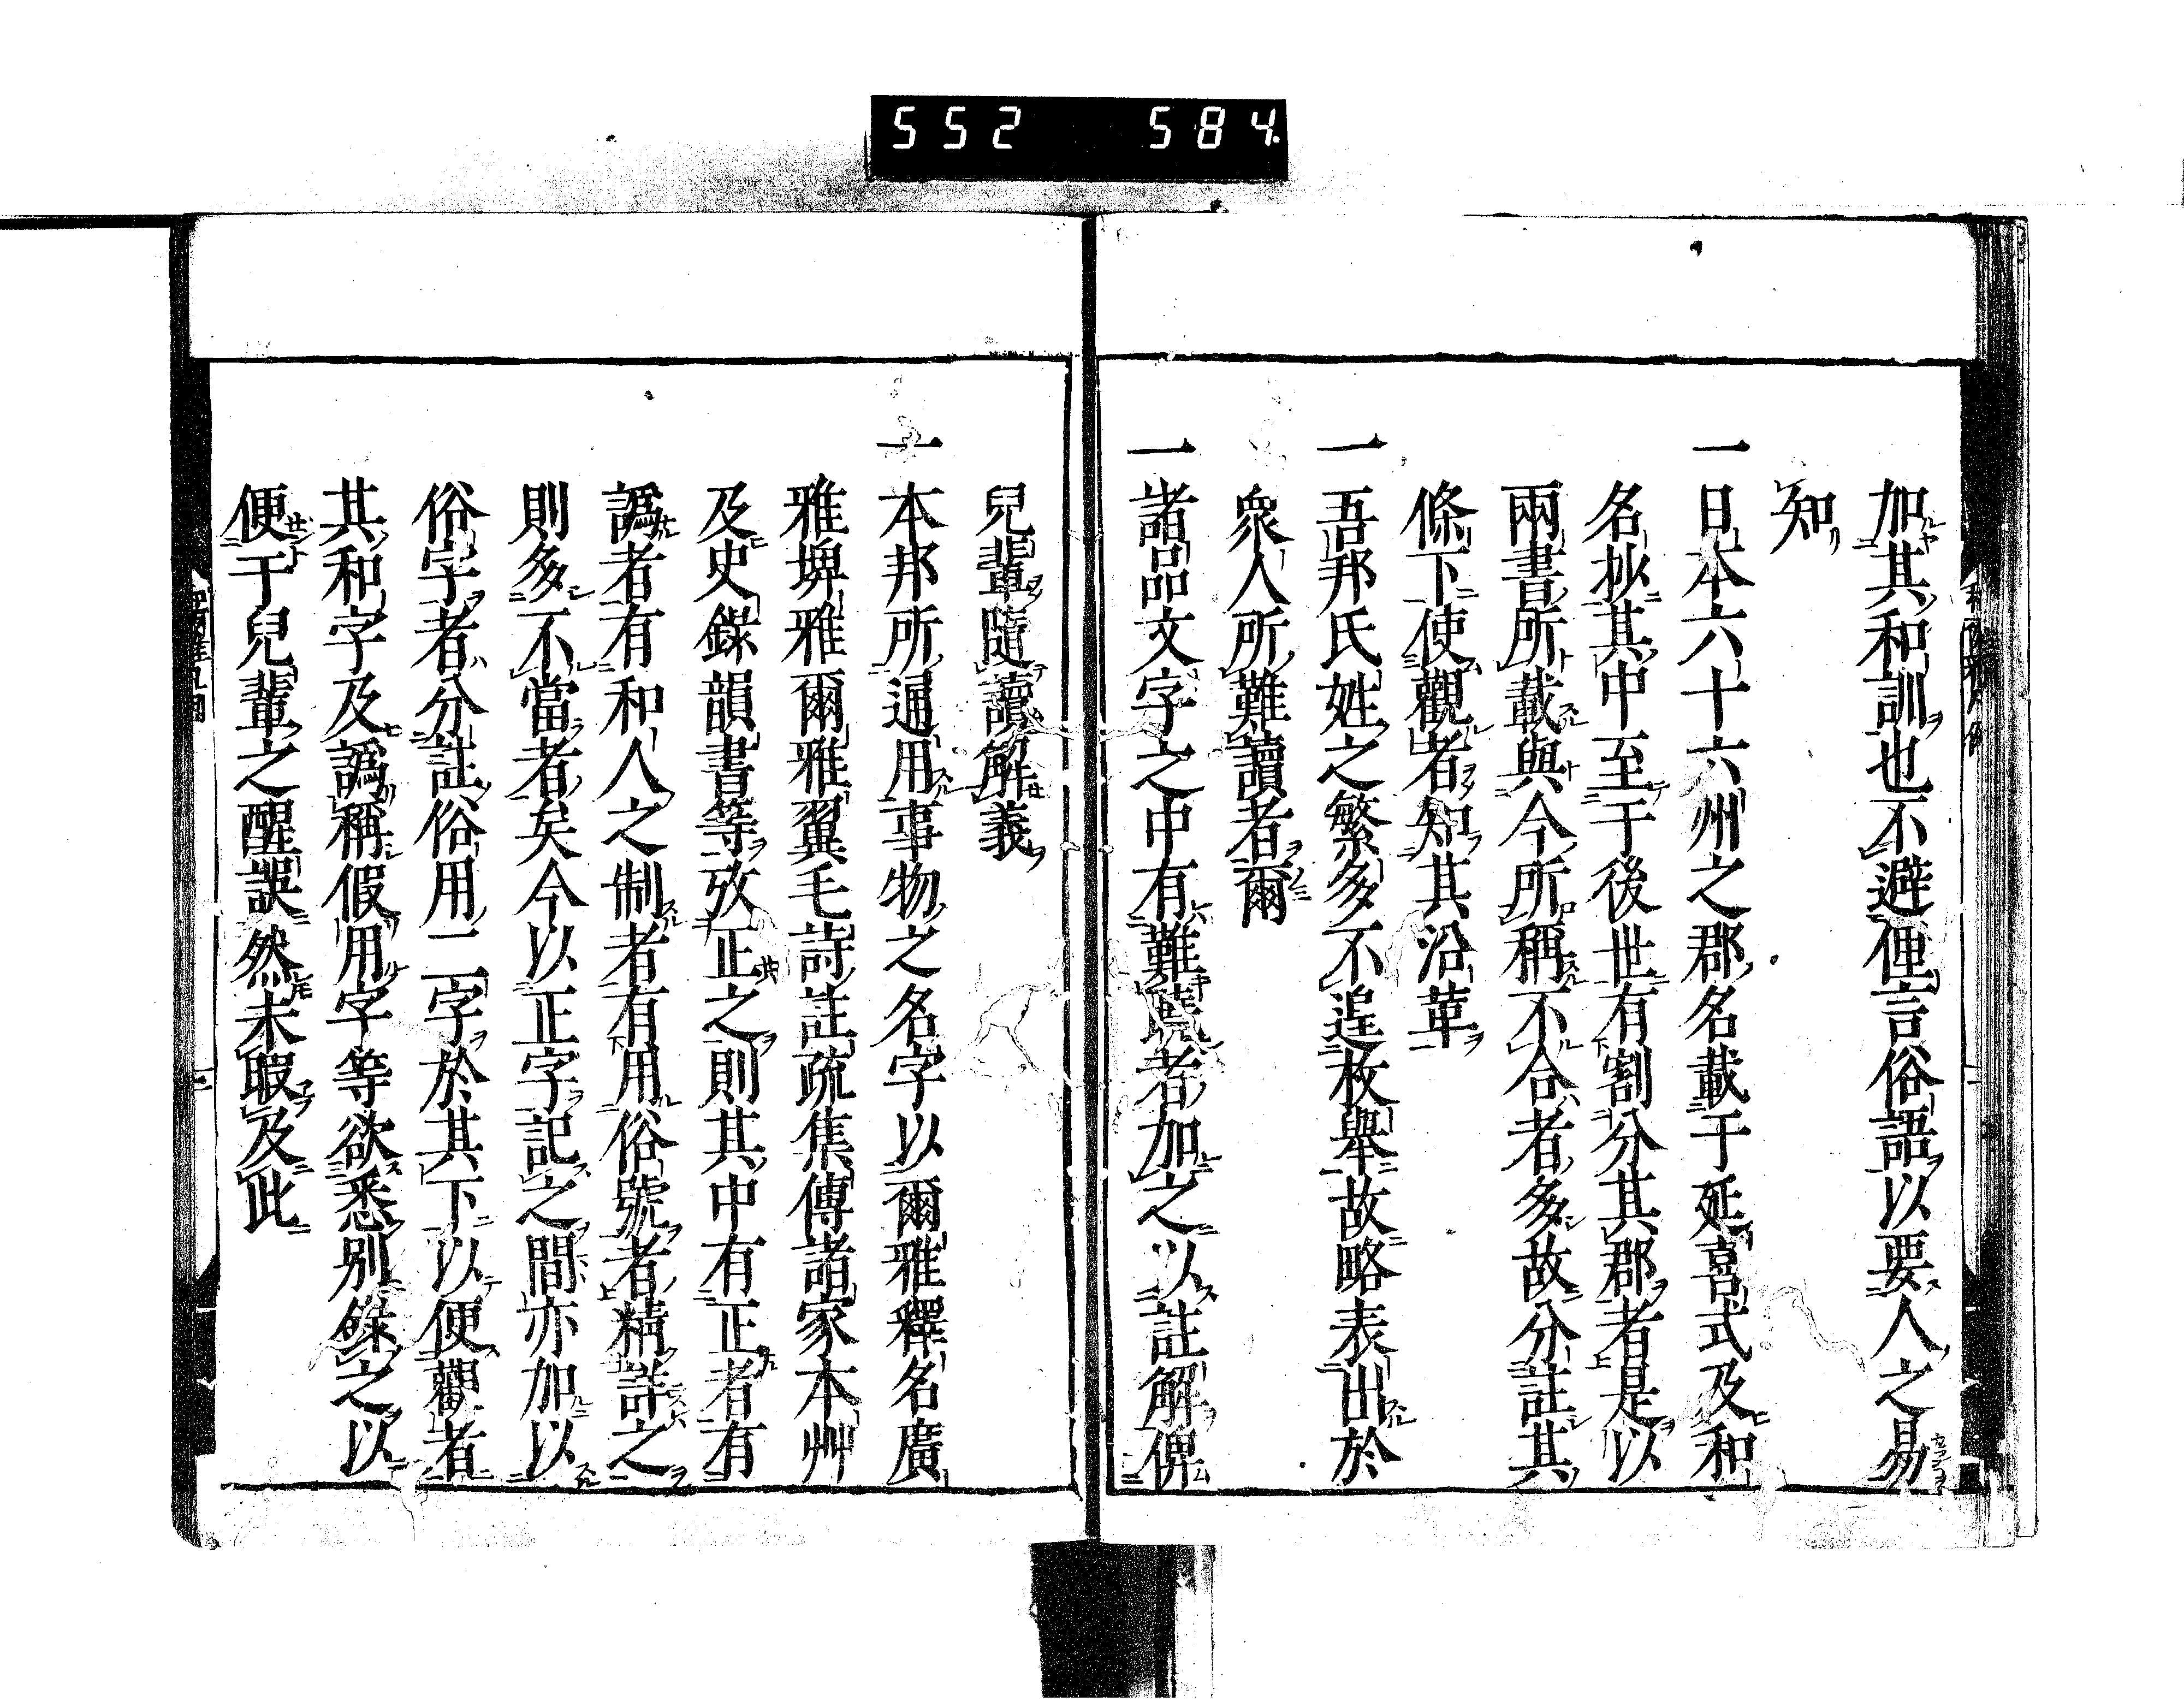 552 584.
加其和訓也不避俚言俗語以要人之易
知
一日本六十六州之郡名載于延喜式及和
名抄其中至于後世有割分其郡者是以
兩書所載與今所稱不合者多故分註其
條下使觀者知其沿革
一吾邦氏姓之繁多不遑枚舉故略表出於
衆人所難讀者爾
一諸品文字之中有難曉者加之以註解俾
兒輩隨讀解義
一本邦所通用事物之名字以爾雅釋名廣
雅埤雅爾雅翼毛詩註疏集傳諸家本艸
及史錄韻書等攷正之則其中有正者有
譌者有和人之制者有用俗號者精詳之
則多不當者矣今以正字記之間亦加以
俗字者分註俗用二字於其下以便觀者
其和字及譌稱假用字等欲悉別錄之以
便于兒輩之醒誤然未暇及此